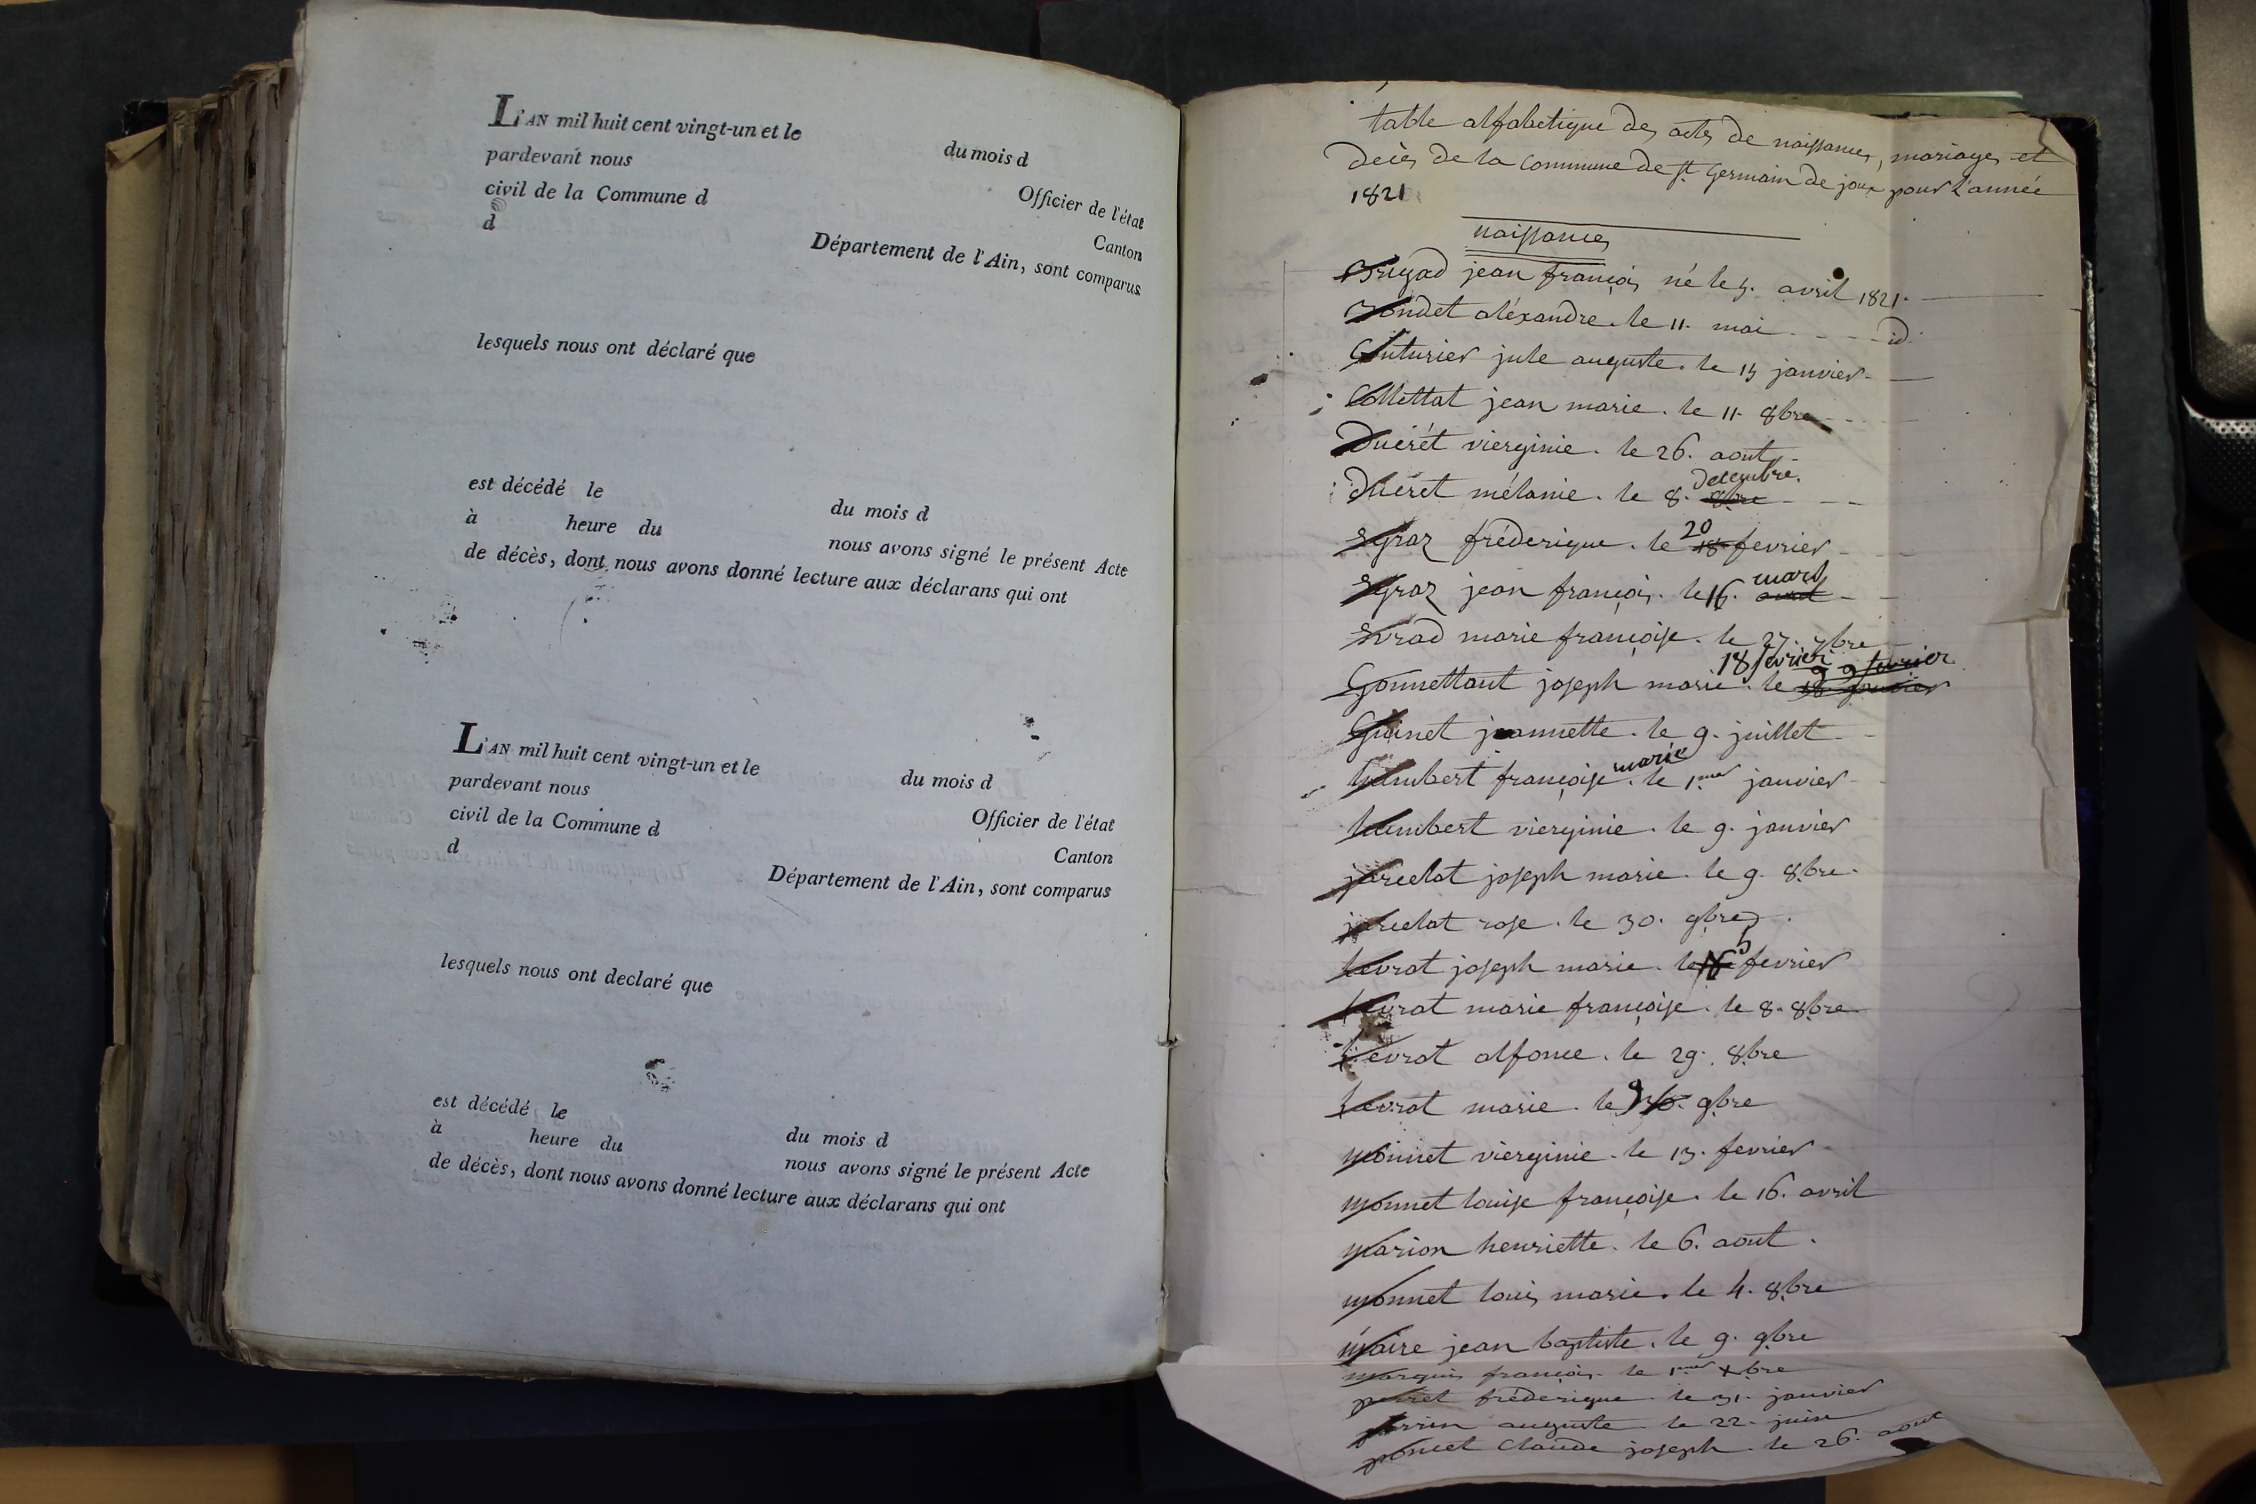 L'AN mil huit cent vingt-un et le du mois d
pardevant nous Officier de l'état
civil de la Commune d Canton
d Département de l'Ain, sont comparus
lesquels nous ont déclaré que
est décédé le du mois d
à heure du nous avons signé le présent Acte
de décès, dont nous avons donné lecture aux déclarans qui ont
L'AN mil huit cent vingt-un et le du mois d
pardevant nous Officier de l'état
civil de la Commune d Canton
d Département de l'Ain, sont comparus
lesquels nous ont declaré que
est décédé le du mois d
à heure du nous avons signé le présent Acte
de décès, dont nous avons donné lecture aux déclarans qui ont
table alfabetique des actes de naissances, mariages et
decès de la commune de st. Germain de joux pour l'année
1821
naissances
jean françois né le 5. avril 1821.
Bondet aléxandre. le 11. mai id.
Couturier jule auguste. le 15 janvier
Collettat jean marie. le 11. 8bre
Ducrét vierginie. le 26. aout
Ducret mélanie. le 8. 8bre decembre.
Egraz fréderique. le 18 20 fevrier
Egraz jean françois. le 16. avril mars
Evrad marie françoise. le 27. 7bre
Gonnettant joseph marie. le 18 fevrier 9 fevrier
Guinet jeannette. le 9. juillet
humbert françoise marie. le 1.mer janvier
humbert vierginie. le 9. janvier
jarcelat joseph marie. le 9. 8bre.
jarcelat rose. le 30. 9bre
levrat joseph marie. le 5 fevrier
levrat marie françoise. le 8. 8bre
levrat alfonce. le 29. 8bre
levrat marie. le 9bre
monnet vierginie. le 13. fevrier
monnet louise françoise. le 16. avril
marion henriette. le 6. aout.
monnet louis marie. le 4. 8bre
maire jean baptiste. le 9. 9bre
marquis françois. le 1.mer Xbre
perret fréderique. le 31. janvier
perrin auguste. le 22. juin
poncet Claude joseph. le 26. aout